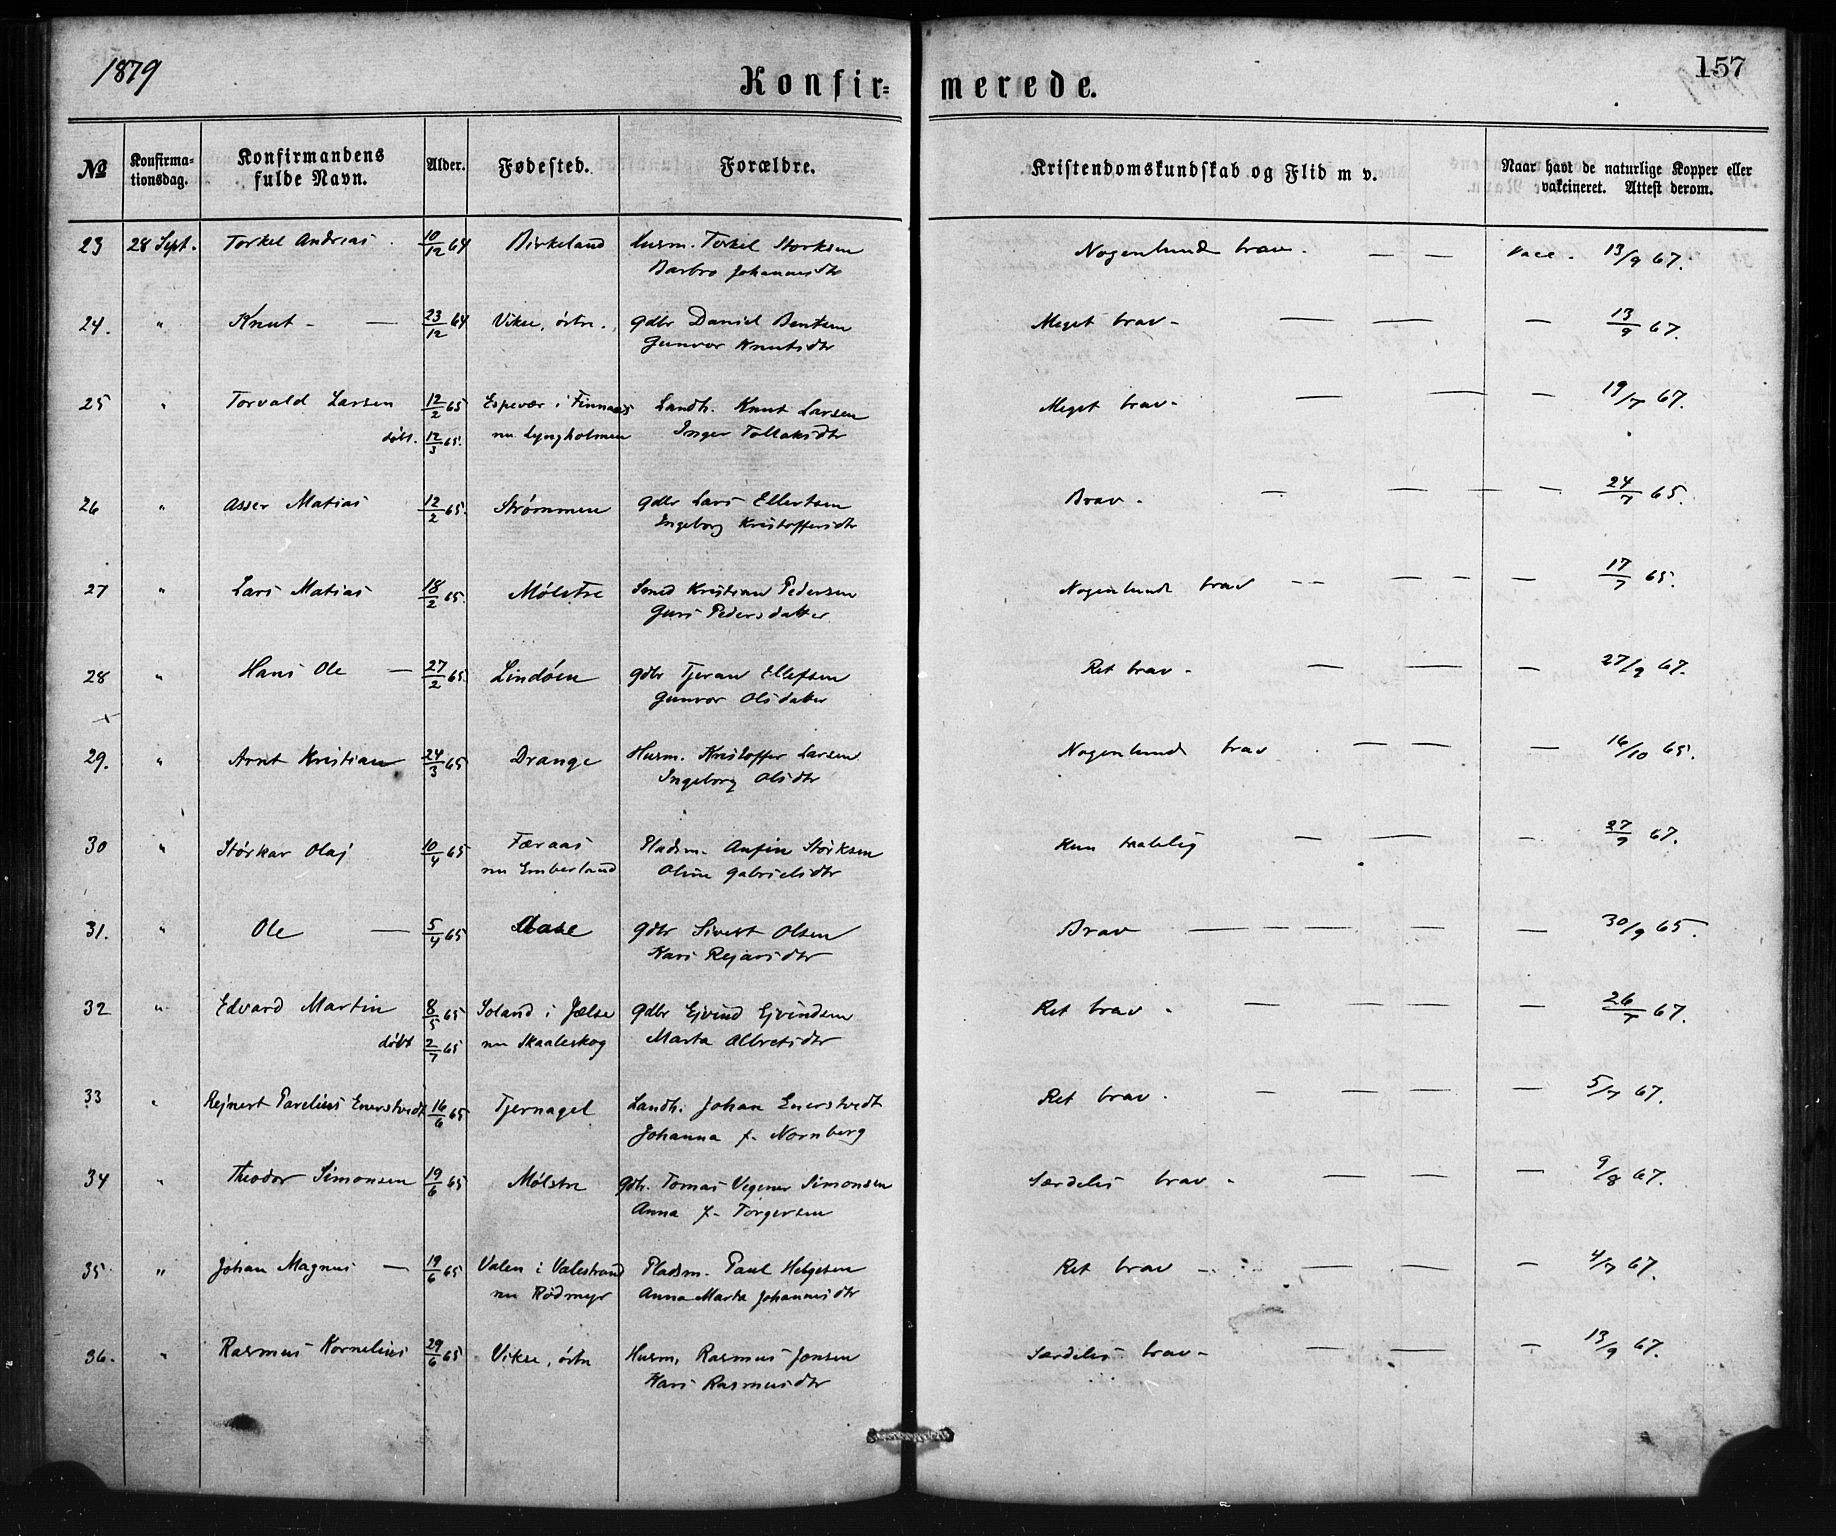 1879 Konfirmerede. 157
№ Konfirmationsdag. Konfirmandens fulde Navn. Alder. Fødested. Forældre. Kristendomskundskab og Flid m v. Naar havt de naturlige Kopper eller vakcineret. Attest derom.
23 28 Sept. Torkel Andreas 10/12 64 Birkeland Husm. Torkel Storksen Nogenlunde brav - — — Vacc. 13/9 67.
Barbro Johannesdtr
24. " Knut - — 23/12 64 Vikse, østre. gdbr Daniel Bentsen Meget brav - — — — 13/9 67.
Gunvor Knutsdtr
25 " Torvald Larsen 12/2 65 Espevær i Finnaas Landh. Knut Larsen Meget brav - — — — 19/7 67.
døbt. 12/3 65. nu Lyngholmen Inger Tollaksdtr
26 " Asser Matias 12/2 65. Strømmen gdbr Lars Ellertsen Brav - — — — — 24/7 65.
Ingeborg Kristoffersdtr
27 " Lars Matias 18/2 65. Mølstre Smed Kristian Pedersen Nogenlunde brav - - — — — 17/7 65.
Guri Pedersdatter
28 " Hans Ole — 27/2 65. Lindøen gdbr Tjeran Ellefsen Ret brav - — — — 27/9 67.
Gunvor Olsdatter
29. " Arnt Kristian 24/3 65 Drange Husm. Kristoffer Larsen Nogenlunde brav — — — 16/10 65.
Ingeborg Olsdtr
30 " Størkar Olaj 10/4 65 Færaas Pladsm. Anfin Størksen Kun taalelig — — — 27/9 67.
nu Emberland Oline Gabrielsdtr
31. " Ole — 5/4 65 Aase gdbr Sivert Olsen Brav — — — — — — 30/9 65.
Kari Rejarsdtr
32 " Edvard Martin 8/5 65 Soland i Jælse gdbr Ejvind Ejvindsen Ret brav - — — — — 26/7 67.
døbt 2/7 65 nu Skaaleskog Marta Albretsdtr
33 " Rejnert Parelius Enerstvedt 16/6 65 Tjernagel Landh. Johan Enerstvedt Ret brav. — — — — 5/7 67.
Johanna f. Nornberg
34 " Theodor Simonsen 19/6 65 Mølstre gdbr. Tomas Vegener Simonsen Særdeles brav - — — — 9/8 67.
Anna f. Torgersen
35 " Johan Magnus — 19/6 65 Valen i Valestrand Pladsm. Paul Helgesen Ret brav - — — — 4/7 67.
nu Rødmyr Anna Marta Johannesdtr
36. " Rasmus Kornelius 29/6 65 Vikse, østre Husm. Rasmus Jonsen Særdeles brav - — — — 13/9 67.
Kari Rasmusdtr